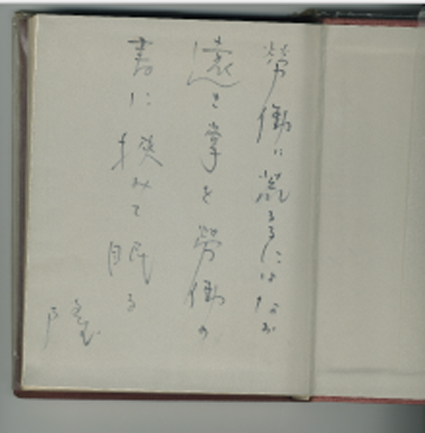 労働に荒るるにはなほ
遠き掌を労働の
書に挟みて眠る
隆